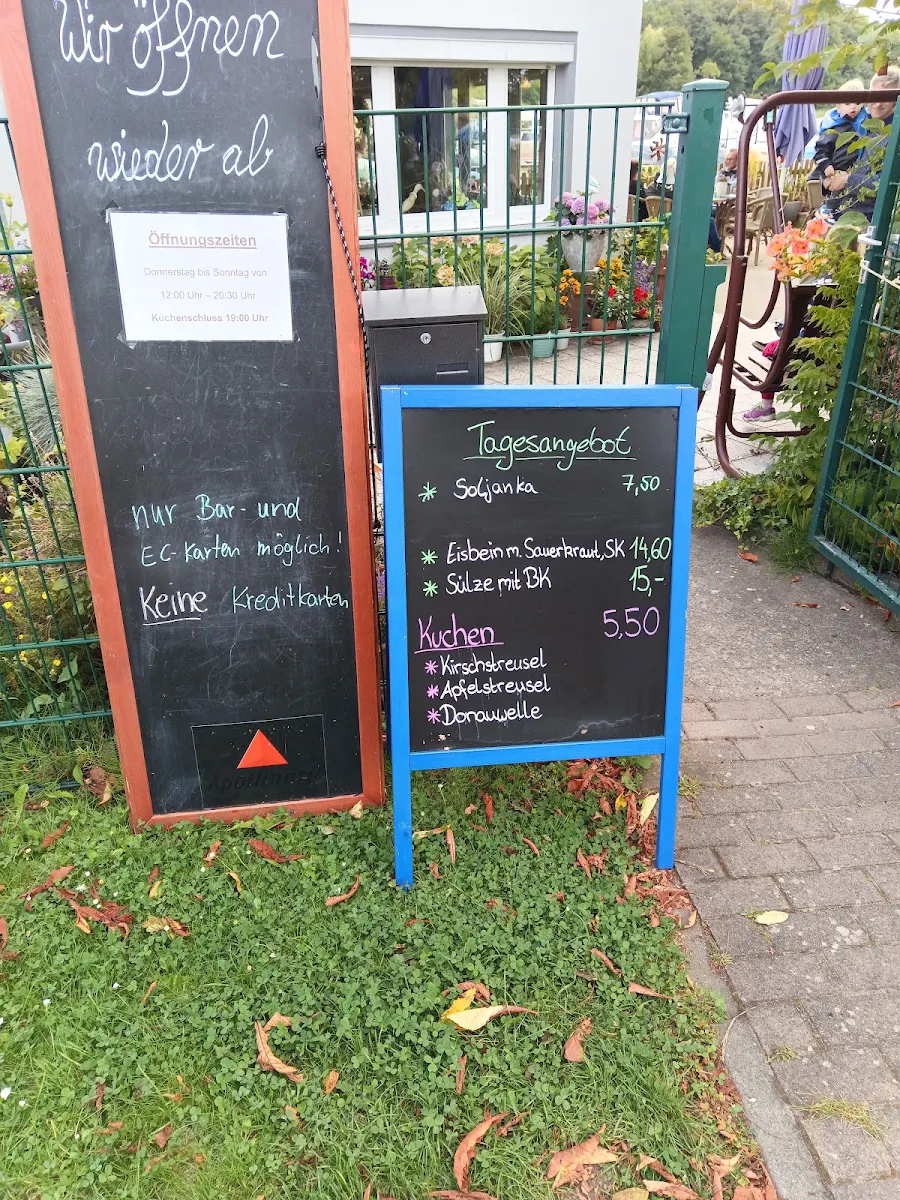 Wir öffnen
wieder ab
Öffnungszeiten
Donnerstag bis Sonntag von
12:00 Uhr – 20:30 Uhr
Küchenschluss 19:00 Uhr
nur Bar- und
EC-Karten möglich!
Keine Kreditkarten
Apollinaris
Tagesangebot
* Soljanka 7,50
* Eisbein m. Sauerkraut, SK 14,60
* Sülze mit BK 15,-
Kuchen 5,50
* Kirschstreusel
* Apfelstreusel
* Donauwelle